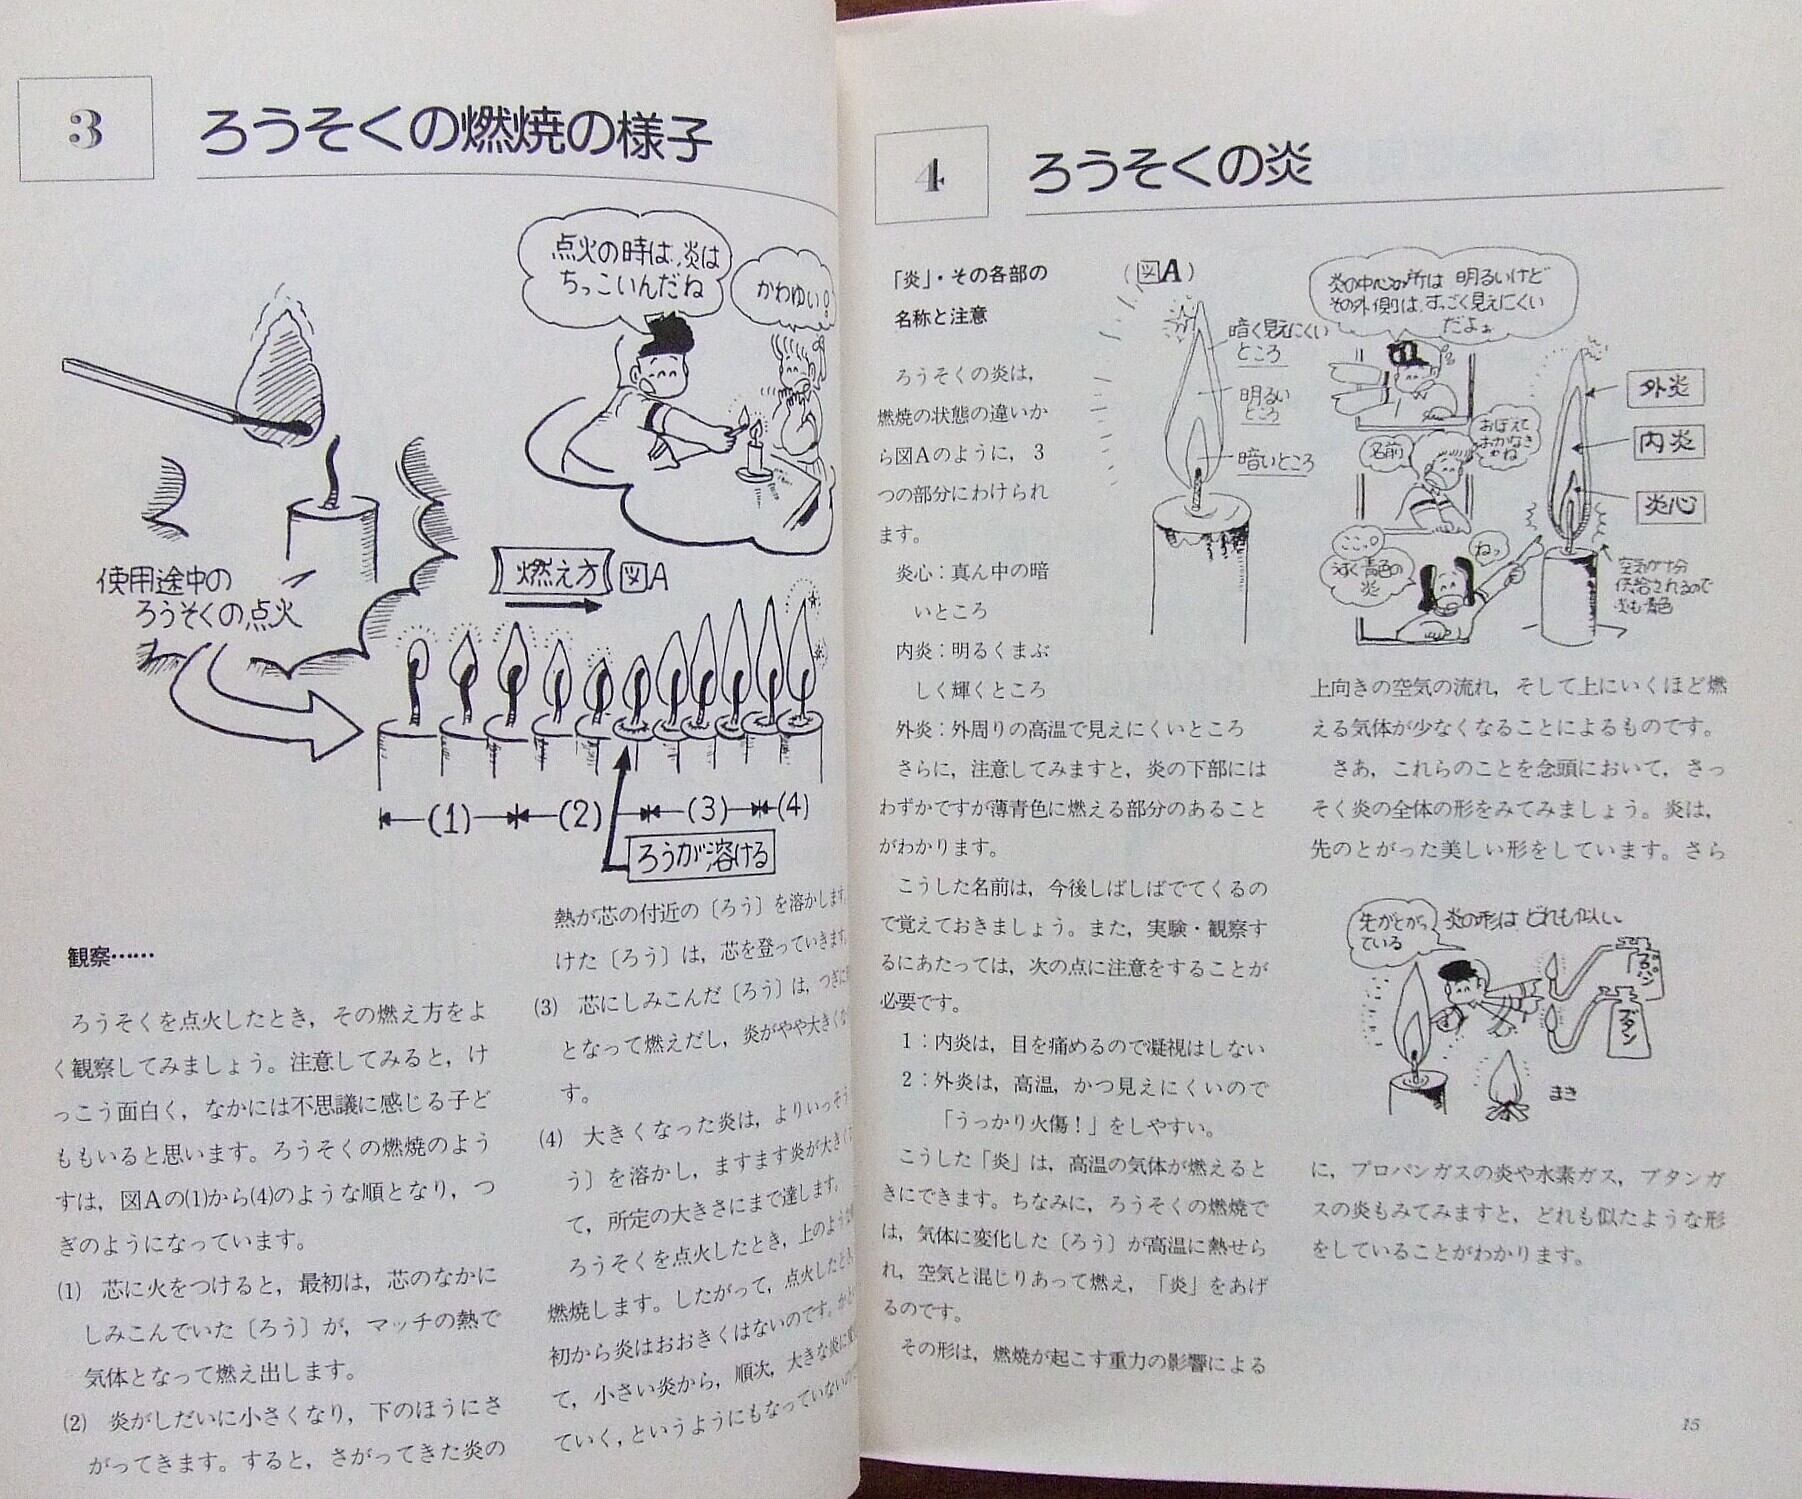 3
ろうそくの燃焼の様子
点火の時は、炎は
ちっこいんだね
かわゆい!
使用途中の
ろうそくの点火
燃え方
図A
(1)
(2)
(3)
(4)
ろうが溶ける
観察……
ろうそくを点火したとき，その燃え方をよ
く観察してみましょう。注意してみると，け
っこう面白く，なかには不思議に感じる子ど
ももいると思います。ろうそくの燃焼のよう
すは，図Aの(1)から(4)のような順となり，つ
ぎのようになっています。
(1) 芯に火をつけると，最初は，芯のなかに
しみこんでいた〔ろう〕が，マッチの熱で
気体となって燃え出します。
(2) 炎がしだいに小さくなり，下のほうにさ
がってきます。すると，さがってきた炎の
熱が芯の付近の〔ろう〕を溶かします
けた〔ろう〕は，芯を登っていきます
(3) 芯にしみこんだ〔ろう〕は，つぎに
となって燃えだし，炎がやや大きく
す。
(4) 大きくなった炎は，よりいっそう
う〕を溶かし，ますます炎が大きく
て，所定の大きさにまで達します。
ろうそくを点火したとき，上のような
燃焼します。したがって，点火したとき
初から炎はおおきくはないのです。
て，小さい炎から，順次，大きな炎に
ていく，というようにもなっていない
4
ろうそくの炎
「炎」・その各部の
名称と注意
ろうそくの炎は，
燃焼の状態の違いか
ら図Aのように，3
つの部分にわけられ
ます。
炎心：真ん中の暗
いところ
内炎：明るくまぶ
しく輝くところ
外炎：外周りの高温で見えにくいところ
さらに，注意してみますと，炎の下部には
わずかですが薄青色に燃える部分のあること
がわかります。
こうした名前は，今後しばしばでてくるの
で覚えておきましょう。また，実験・観察す
るにあたっては，次の点に注意をすることが
必要です。
1：内炎は，目を痛めるので凝視はしない
2：外炎は，高温，かつ見えにくいので
「うっかり火傷！」をしやすい。
こうした「炎」は，高温の気体が燃えると
きにできます。ちなみに，ろうそくの燃焼で
は，気体に変化した〔ろう〕が高温に熱せら
れ，空気と混じりあって燃え，「炎」をあげ
るのです。
その形は，燃焼が起こす重力の影響による
（図A）
暗く見えにくい
ところ
明るい
ところ
暗いところ
炎の中心の所は 明るいけど
その外側は、すっごく見えにくい
だよぉ
外炎
内炎
炎心
名前
おぼえて
おかなき
ゃね
ここっ。
ねっ
うすく青色の
炎
空気が十分
供給されるので
炎も青色
上向きの空気の流れ，そして上にいくほど燃
える気体が少なくなることによるものです。
さあ，これらのことを念頭において，さっ
そく炎の全体の形をみてみましょう。炎は，
先のとがった美しい形をしています。さら
先がとがっ
ている
炎の形は どれも似い
プロパン
ブタン
まき
に，プロパンガスの炎や水素ガス，ブタンガ
スの炎もみてみますと，どれも似たような形
をしていることがわかります。
15